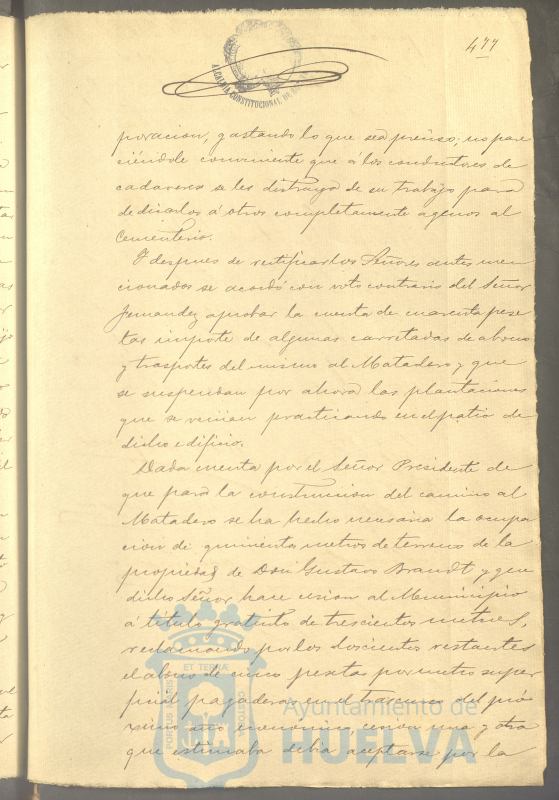 477
ALCALDIA CONSTITUCIONAL DE
poracion, gastando lo que sea preciso; no pare
ciéndole conveniente que á los conductores de
cadaveres se les distraiga de su trabajo para
dedicarlos á otros completamente agenos al
Cementerio.
Y despues de rectificar los Señores antes men
cionados se acordó con voto contrario del Señor
Fernandez aprobar la cuenta de cuarenta pese
tas importe de algunas carretadas de abono
y trasportes del mismo al Matadero y que
se suspendan por ahora las plantaciones
que se venian practicando en el patio de
dicho edificio.
Dada cuenta por el Señor Presidente de
que para la construccion del camino al
Matadero se ha hecho necesaria la ocupa
cion de quinientos metros de terreno de la
propiedad de Don Gustavo Brandt y que
dicho Señor hace cesion al Municipio
á título gratuito de trescientos metros,
reclamando por los doscientos restantes
el abono de cinco pesetas por metro super
ficial pagaderas en el trascurso del pró
ximo año economico, cesion una y otra
que estimaba debia aceptarse por la
PORTUS MARIS
ET TERRÆ
CUSTODIA
Ayuntamiento de
HUELVA